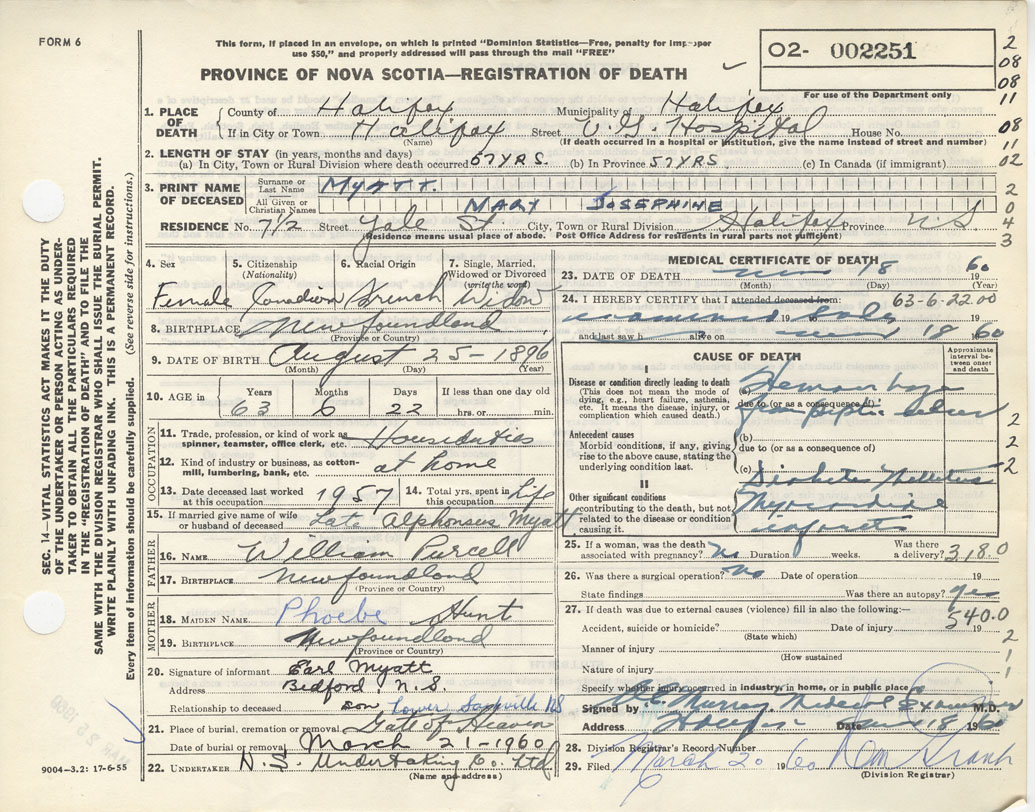 FORM 6
This form, if placed in an envelope, on which is printed "Dominion Statistics—Free, penalty for improper
use $50," and properly addressed will pass through the mail "FREE"
PROVINCE OF NOVA SCOTIA—REGISTRATION OF DEATH
O2- 002251
For use of the Department only
2
08
08
11
08
11
02
2
0
4
3
1. PLACE OF DEATH
County of Halifax Municipality of Halifax
If in City or Town Halifax Street V.G. Hospital House No.
(Name) (If death occurred in a hospital or institution, give the name instead of street and number)
2. LENGTH OF STAY (in years, months and days)
(a) In City, Town or Rural Division where death occurred 57 YRS. (b) In Province 57 YRS (c) In Canada (if immigrant)
3. PRINT NAME OF DECEASED
Surname or Last Name MYATT.
All Given or Christian Names MARY JOSEPHINE
RESIDENCE No. 7 1/2 Street Yale St City, Town or Rural Division Halifax Province N S
(Residence means usual place of abode. Post Office Address for residents in rural parts not sufficient)
4. Sex 5. Citizenship (Nationality) 6. Racial Origin 7. Single, Married, Widowed or Divorced (write the word)
Female Canadian French Widow
8. BIRTHPLACE Newfoundland
(Province or Country)
9. DATE OF BIRTH August 25 - 1896
(Month) (Day) (Year)
10. AGE in Years Months Days If less than one day old
63 6 22 hrs. or min.
OCCUPATION
11. Trade, profession, or kind of work as spinner, teamster, office clerk, etc. Houseduties
12. Kind of industry or business, as cotton-mill, lumbering, bank, etc. at home
13. Date deceased last worked at this occupation 1957 14. Total yrs. spent in this occupation Life
15. If married give name of wife or husband of deceased Late Alphonsus Myatt
FATHER
16. NAME William Purcell
17. BIRTHPLACE Newfoundland
(Province or Country)
MOTHER
18. MAIDEN NAME Phoebe Hunt
19. BIRTHPLACE Newfoundland
(Province or Country)
20. Signature of informant Earl Myatt
Address Bedford, N.S.
Relationship to deceased son, Lower Sackville NS
21. Place of burial, cremation or removal Gate of Heaven
Date of burial or removal March 21-1960
22. UNDERTAKER N.S. Undertaking Co. Ltd
(Name and address)
MEDICAL CERTIFICATE OF DEATH
23. DATE OF DEATH 18 19 60
(Month) (Day) (Year)
24. I HEREBY CERTIFY that I attended deceased from: 63-6-22.00
examined 19 body
and last saw h alive on 18 1960
CAUSE OF DEATH
Approximate interval between onset and death
I
Disease or condition directly leading to death
(This does not mean the mode of dying, e.g., heart failure, asthenia, etc. It means the disease, injury, or complication which caused death.)
(a) Hemorrhage
due to (or as a consequence of)
from peptic ulcer
Antecedent causes
Morbid conditions, if any, giving rise to the above cause, stating the underlying condition last.
(b)
due to (or as a consequence of)
(c)
II
Other significant conditions contributing to the death, but not related to the disease or condition causing it.
Diabetes Mellitus
Myocardial
infarct
2
2
2
2
25. If a woman, was the death associated with pregnancy? No Duration weeks. Was there a delivery? 318.0
26. Was there a surgical operation? No Date of operation 19
State findings Was there an autopsy? Yes
27. If death was due to external causes (violence) fill in also the following:—
540.0
Accident, suicide or homicide? Date of injury 19
(State which)
Manner of injury
(How sustained
Nature of injury
2
1
1
Specify whether injury occurred in industry, in home, or in public place
Signed by Murray Medical Examiner M.D.
Address Halifax Date 18 1960
28. Division Registrar's Record Number
29. Filed March 20 1960
(Division Registrar)
SEC. 14—VITAL STATISTICS ACT MAKES IT THE DUTY
OF THE UNDERTAKER OR PERSON ACTING AS UNDER-
TAKER TO OBTAIN ALL THE PARTICULARS REQUIRED
IN THE "REGISTRATION OF DEATH" AND TO FILE THE
SAME WITH THE DIVISION REGISTRAR WHO SHALL ISSUE THE BURIAL PERMIT.
WRITE PLAINLY WITH UNFADING INK. THIS IS A PERMANENT RECORD.
Every item of information should be carefully supplied. (See reverse side for instructions.)
MAR 25 1960
9004-3.2: 17-6-55